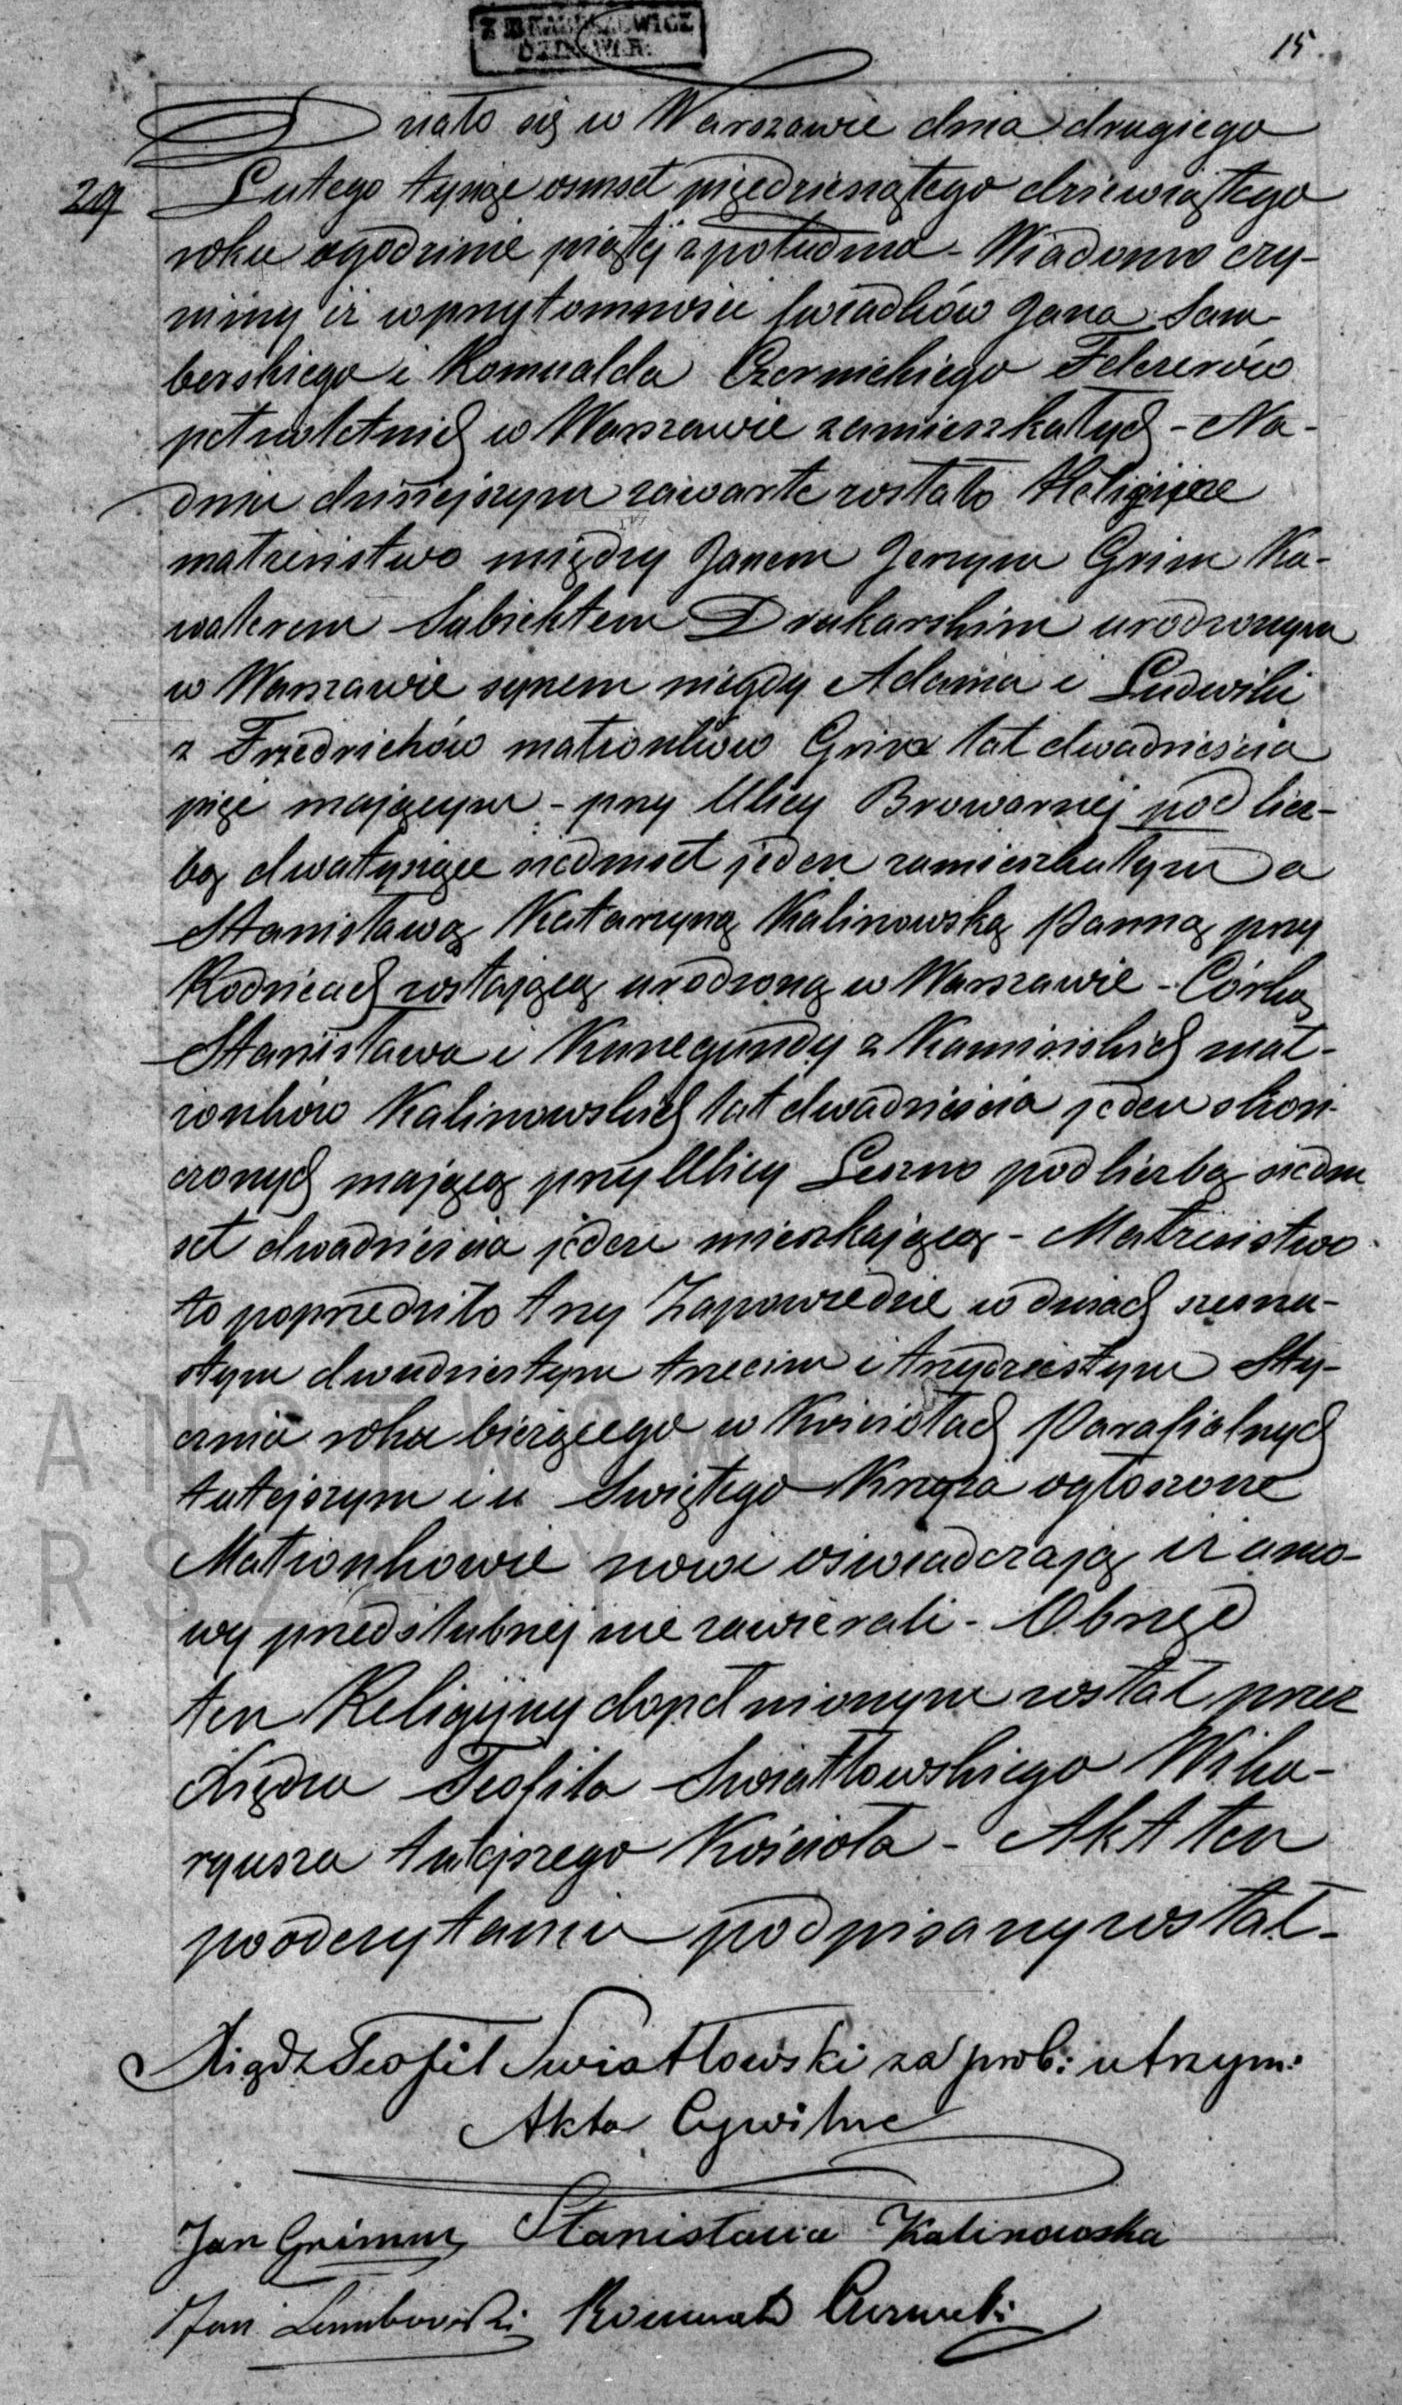 15.
Działo się w Warszawie dnia drugiego
29 Lutego tysiąc ośmset pięćdziesiątego dziewiątego
roku o godzinie piątej z południa - Wiadomo czy-
niemy iż w przytomności świadków Jana Sam-
berskiego i Romualda Czernickiego Felczerów
pełnoletnich w Warszawie zamieszkałych - Na
dniu dzisiejszym zawarte zostało Religijne
małżeństwo między Janem Jerzym Grim Ka-
walerem Subiektem Drukarskim urodzonym
w Warszawie synem niegdy Adama i Ludwiki
z Friedrichów małżonków Grim lat dwadzieścia
pięć mającym - przy Ulicy Browarnej pod licz-
bą dwatysiące siedmset jeden zamieszkałym a
Stanisławą Katarzyną Kalinowską Panną przy
Rodzicach zostającą urodzoną w Warszawie - Córką
Stanisława i Kunegundy z Kamińskich mał-
żonków Kalinowskich lat dwadzieścia jeden skoń-
czonych mającą przy Ulicy Leszno pod liczbą siedm
set dwadzieścia jeden mieszkającą - Małżeństwo
to poprzedziło trzy Zapowiedzie w dniach szesna-
stym dwudziestym trzecim i trzydziestym Sty-
cznia roku bieżącego w Kościołach Parafialnych
tutejszym i u Świętego Krzyża ogłoszone
Małżonkowie nowi oświadczają iż umo-
wy przedślubnej nie zawierali - Obrzęd
ten Religijny dopełnionym został przez
Księdza Teofila Światłowskiego Wika-
ryusza tutejszego Kościoła - Akt ten
po odczytaniu podpisany został -
Xiądz Teofil Swiatłowski za prob: utrzym:
Akta Cywilne
Jan Grimm Stanisława Kalinowska
Jan Romuald
ANSTWOWE
RSZAWY